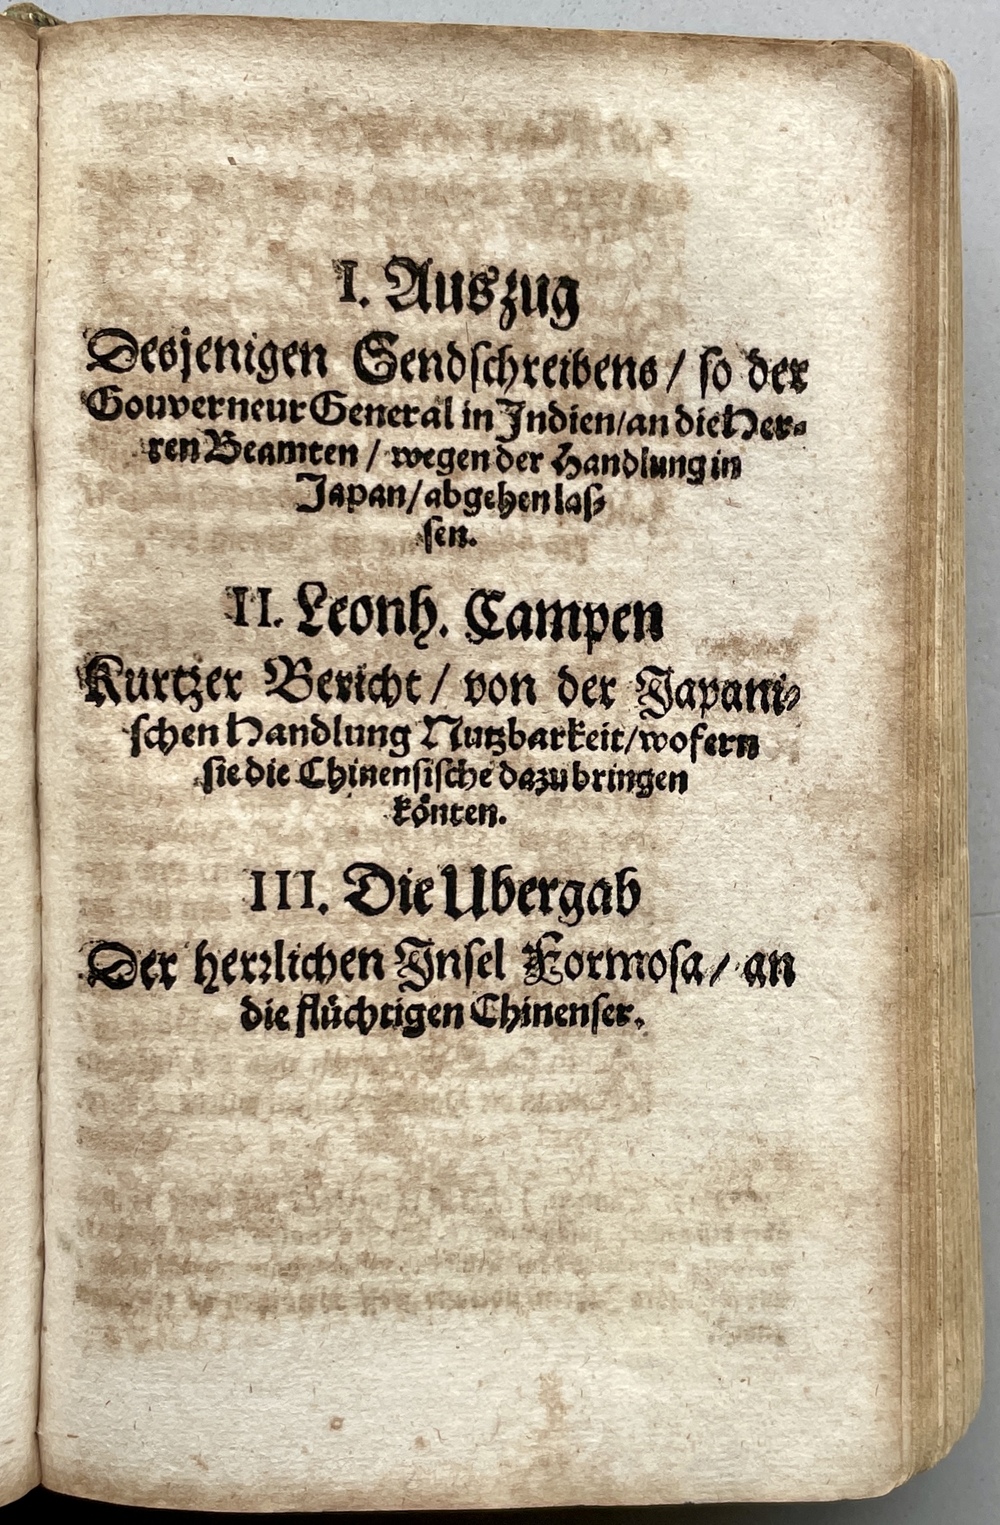 I. Auszug
Desjenigen Sendschreibens / so der
Gouverneur General in Indien/an die Her-
ren Beamten / wegen der Handlung in
Japan/abgehen las-
sen.
II. Leonh. Campen
Kurtzer Bericht / von der Japani-
schen Handlung Nutzbarkeit/wofern
sie die Chinensische dazu bringen
koͤnten.
III. Die Ubergab
Der herꝛlichen Insel Formosa / an
die fluͤchtigen Chinenser.